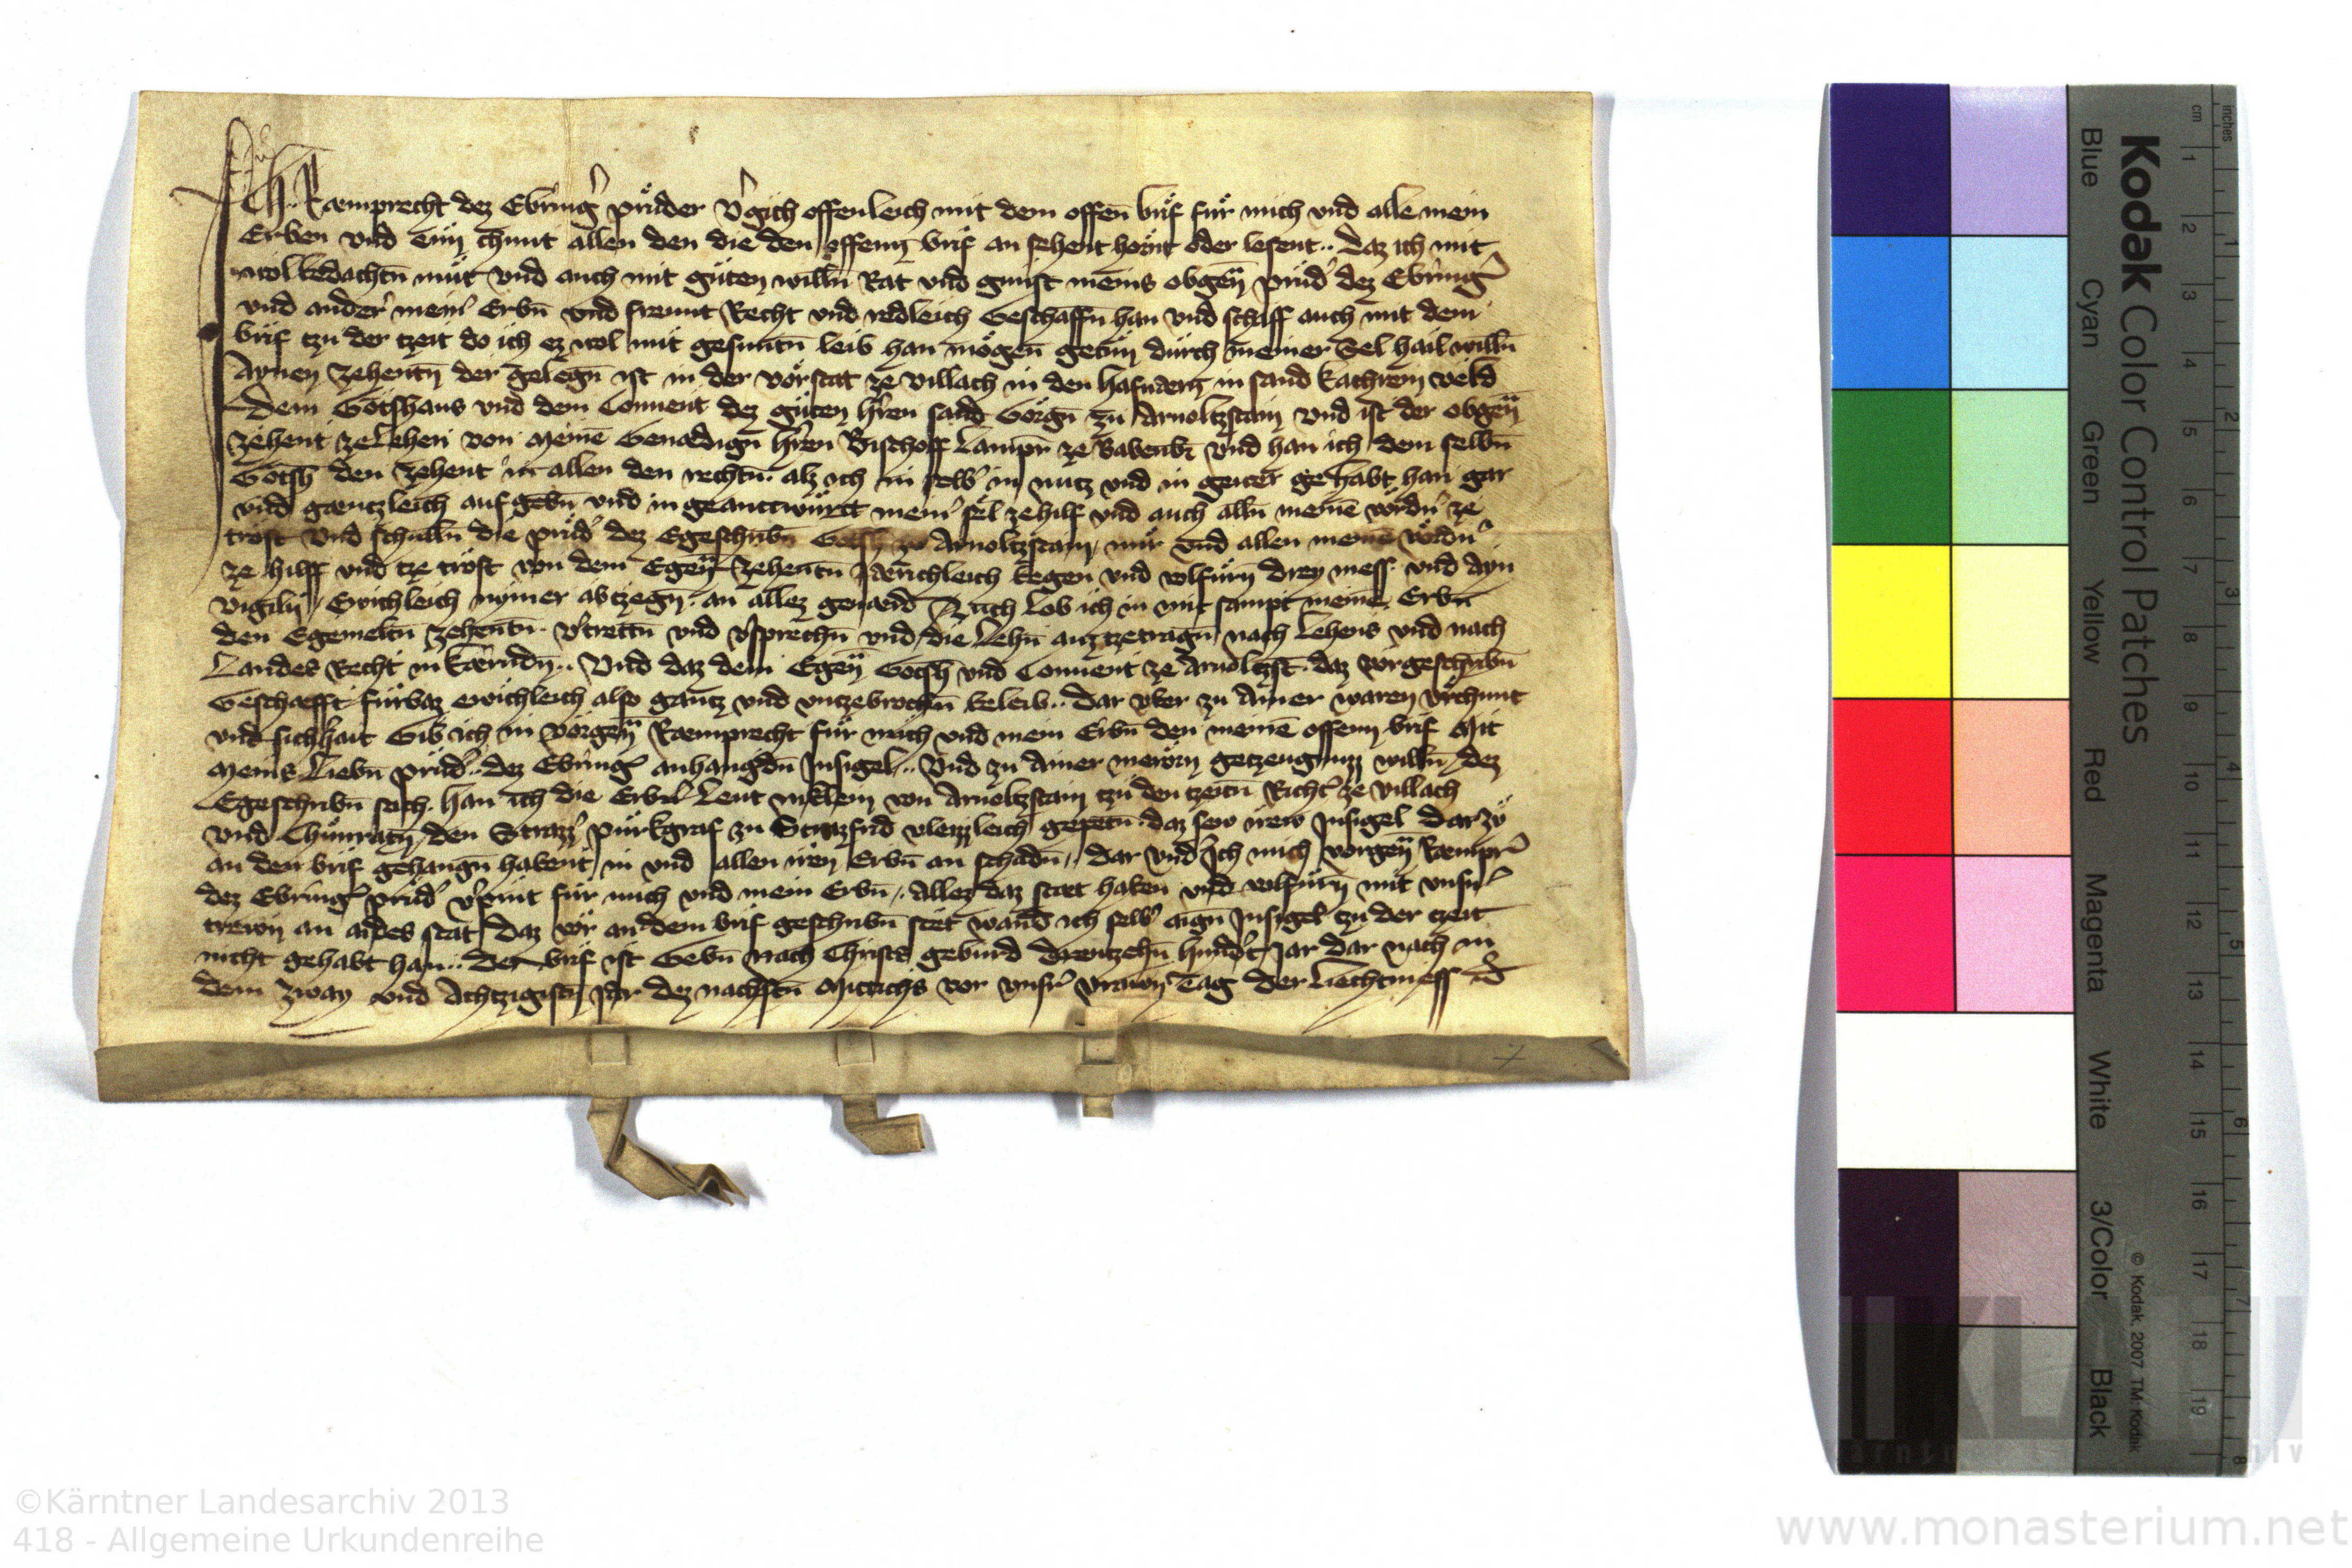 Ich Raemprecht dez Ebring̕ průder V̕gich offenleich mit dem offen̄ brif fůr mich vnd alle mein
Erben vnd tůn chunt allen den die den offenn brif an sehent hörnt oder lesent .. daz ich mit
wol bedachtn̄ můt vnd auch mit gůten willn̄ Rat vnd gunst meins obgen̄ průd̕ dez Ebring̕
vnd ander̕ mein̕ Erbn̄ vnd freunt Recht vnd redleich Geschaffn̄ han vnd schaff auch mit dem
brif tzu der tzeit do ich ez wol mit gesuntn̄ leib han mögen̄ getůn durch meiner Sel hail willn̄
Aynen zehentn̄ der gelegn̄ ist in der vorstat ze villach in den hafnaern in sand kathrein veld
dem Gotshaus vnd dem Conuent dez gůten hr̄en sand Görgn̄ zu Arnoltzstain vnd ist der obgen̄
zehent ze lehen von meinē Genaedign̄ hr̄en Bischoff Lampr̄ ze Babenb̄ vnd han ich dem selbn̄
Gotsh̄ den zehent in allen den rechtn̄ . alz ich in selb̕ in nutz vnd in gewer gehabt han gar
vnd gaentzleich auf gebn̄ vnd in geantwürtt mein̕ sel ze hilf vnd auch alln̄ meinē vordn̕ ze
trost vnd schulln̄ die průd̕ dez Egeschribn̄ Gotsh̄ zu Arnoltzstain mir vnd allen meinē vordn̕
ze hilff vnd tze trost von dem Egen̄ zehentn̄ Jaerichleich began vnd volfůrn drey mess . vnd ayn
vigilij / Ewichleich nymer abtzegn . an allez geuaerd Auch lob ich in mit sampt meinē Erbn̄
den Egemeltn̄ zehentn̄ . v̕trettn̄ vnd v̕sprechn̄ vnd die Lehn̄ auz tzetragn̄ nach Lehens vnd nach
Landes Recht in kaerndn̄ .. Vnd daz dem Egen̄ Gotsh̄ vnd Conuent ze Arnoltzst̄ . daz vorgeschribn̄
Geschaefft fůrbaz ewichleich also gantz vnd vntzebrochn̄ beleib .. dar vber zu Ainer waren vrchunt
vnd sich̕hait Gib ich in vorgen̄ Raemprecht fůr mich vnd mein Erbn̄ den meinē offenn brif Mit
meins Liebn̄ průd̕ .. dez Ebring̕ anhangdn̄ Insigel .. Vnd zu Ainer merörn getzeugnuzz willn̄ / dez
Egeschribn̄ sach . han ich die Erbn̕ Leut niklein von Arnoltzstain tzu den tzeitn̄ Richt̕ ze villach
vnd Chunratn̄ den Strazz̕ pürkgraf zu Strazfrid vleizzleich gepetn̄ . daz sew irew Insigel dar zů
an den brif gehangn̄ habent in vnd allen iren Erbn̄ an schadn̄ .. dar vnd̕ ich mich vorgen̄ Raempr̕
dez Ebring̕ průd̕ v̕pint fůr mich vnd mein Erbn̄ .. Allez daz staet haben vnd volfůrn̄ mit vnsn̕
trewn an aides stat daz vor an dem brif geschribn̄ stet wand ich selb̕ aign Insigel tzu der tzeit
nicht gehabt han .. der brif ist Gebn̄ nach Christs gebürd drewtzehn̄ hund̕t Jar dar nach in
dem zway vnd Achtzigistn̄ Jar dez nachstn̄ Mittichs vor vnsr̕ vrawn Tag der Liechtmess
Kodak Color Control Patches
Blue Cyan Green Yellow Red Magenta White 3/Color Black
© Kodak, 2007 TM: Kodak
inches
cm
1 2 3 4 5 6 7 8 9 10 11 12 13 14 15 16 17 18 19
1 2 3 4 5 6 7 8
©Kärntner Landesarchiv 2013
418 - Allgemeine Urkundenreihe
www.monasterium.net